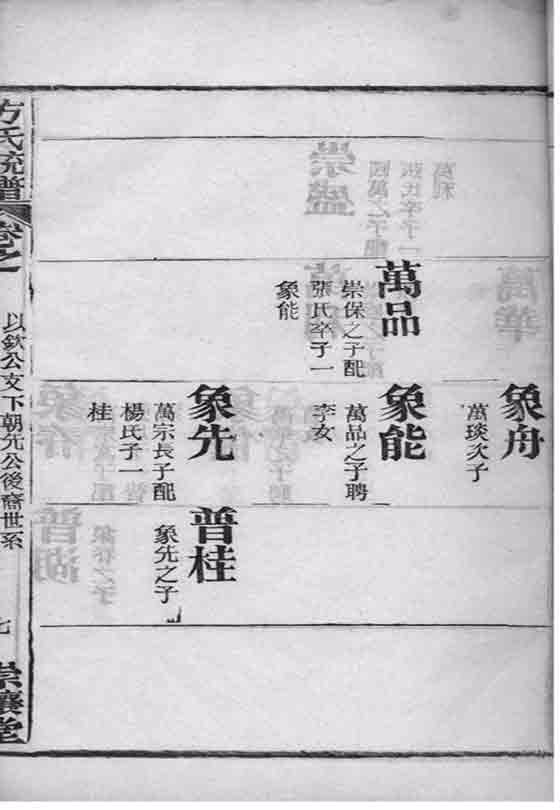 萬品
崇保之子配
張氏卒子一
象能
象舟
萬琰次子
象能
萬品之子聘
李女
象先
萬宗長子配
楊氏子一
桂
普桂
象先之子
方氏統譜
卷之一
以欽公支下朝先公後裔世系
七
崇讓堂